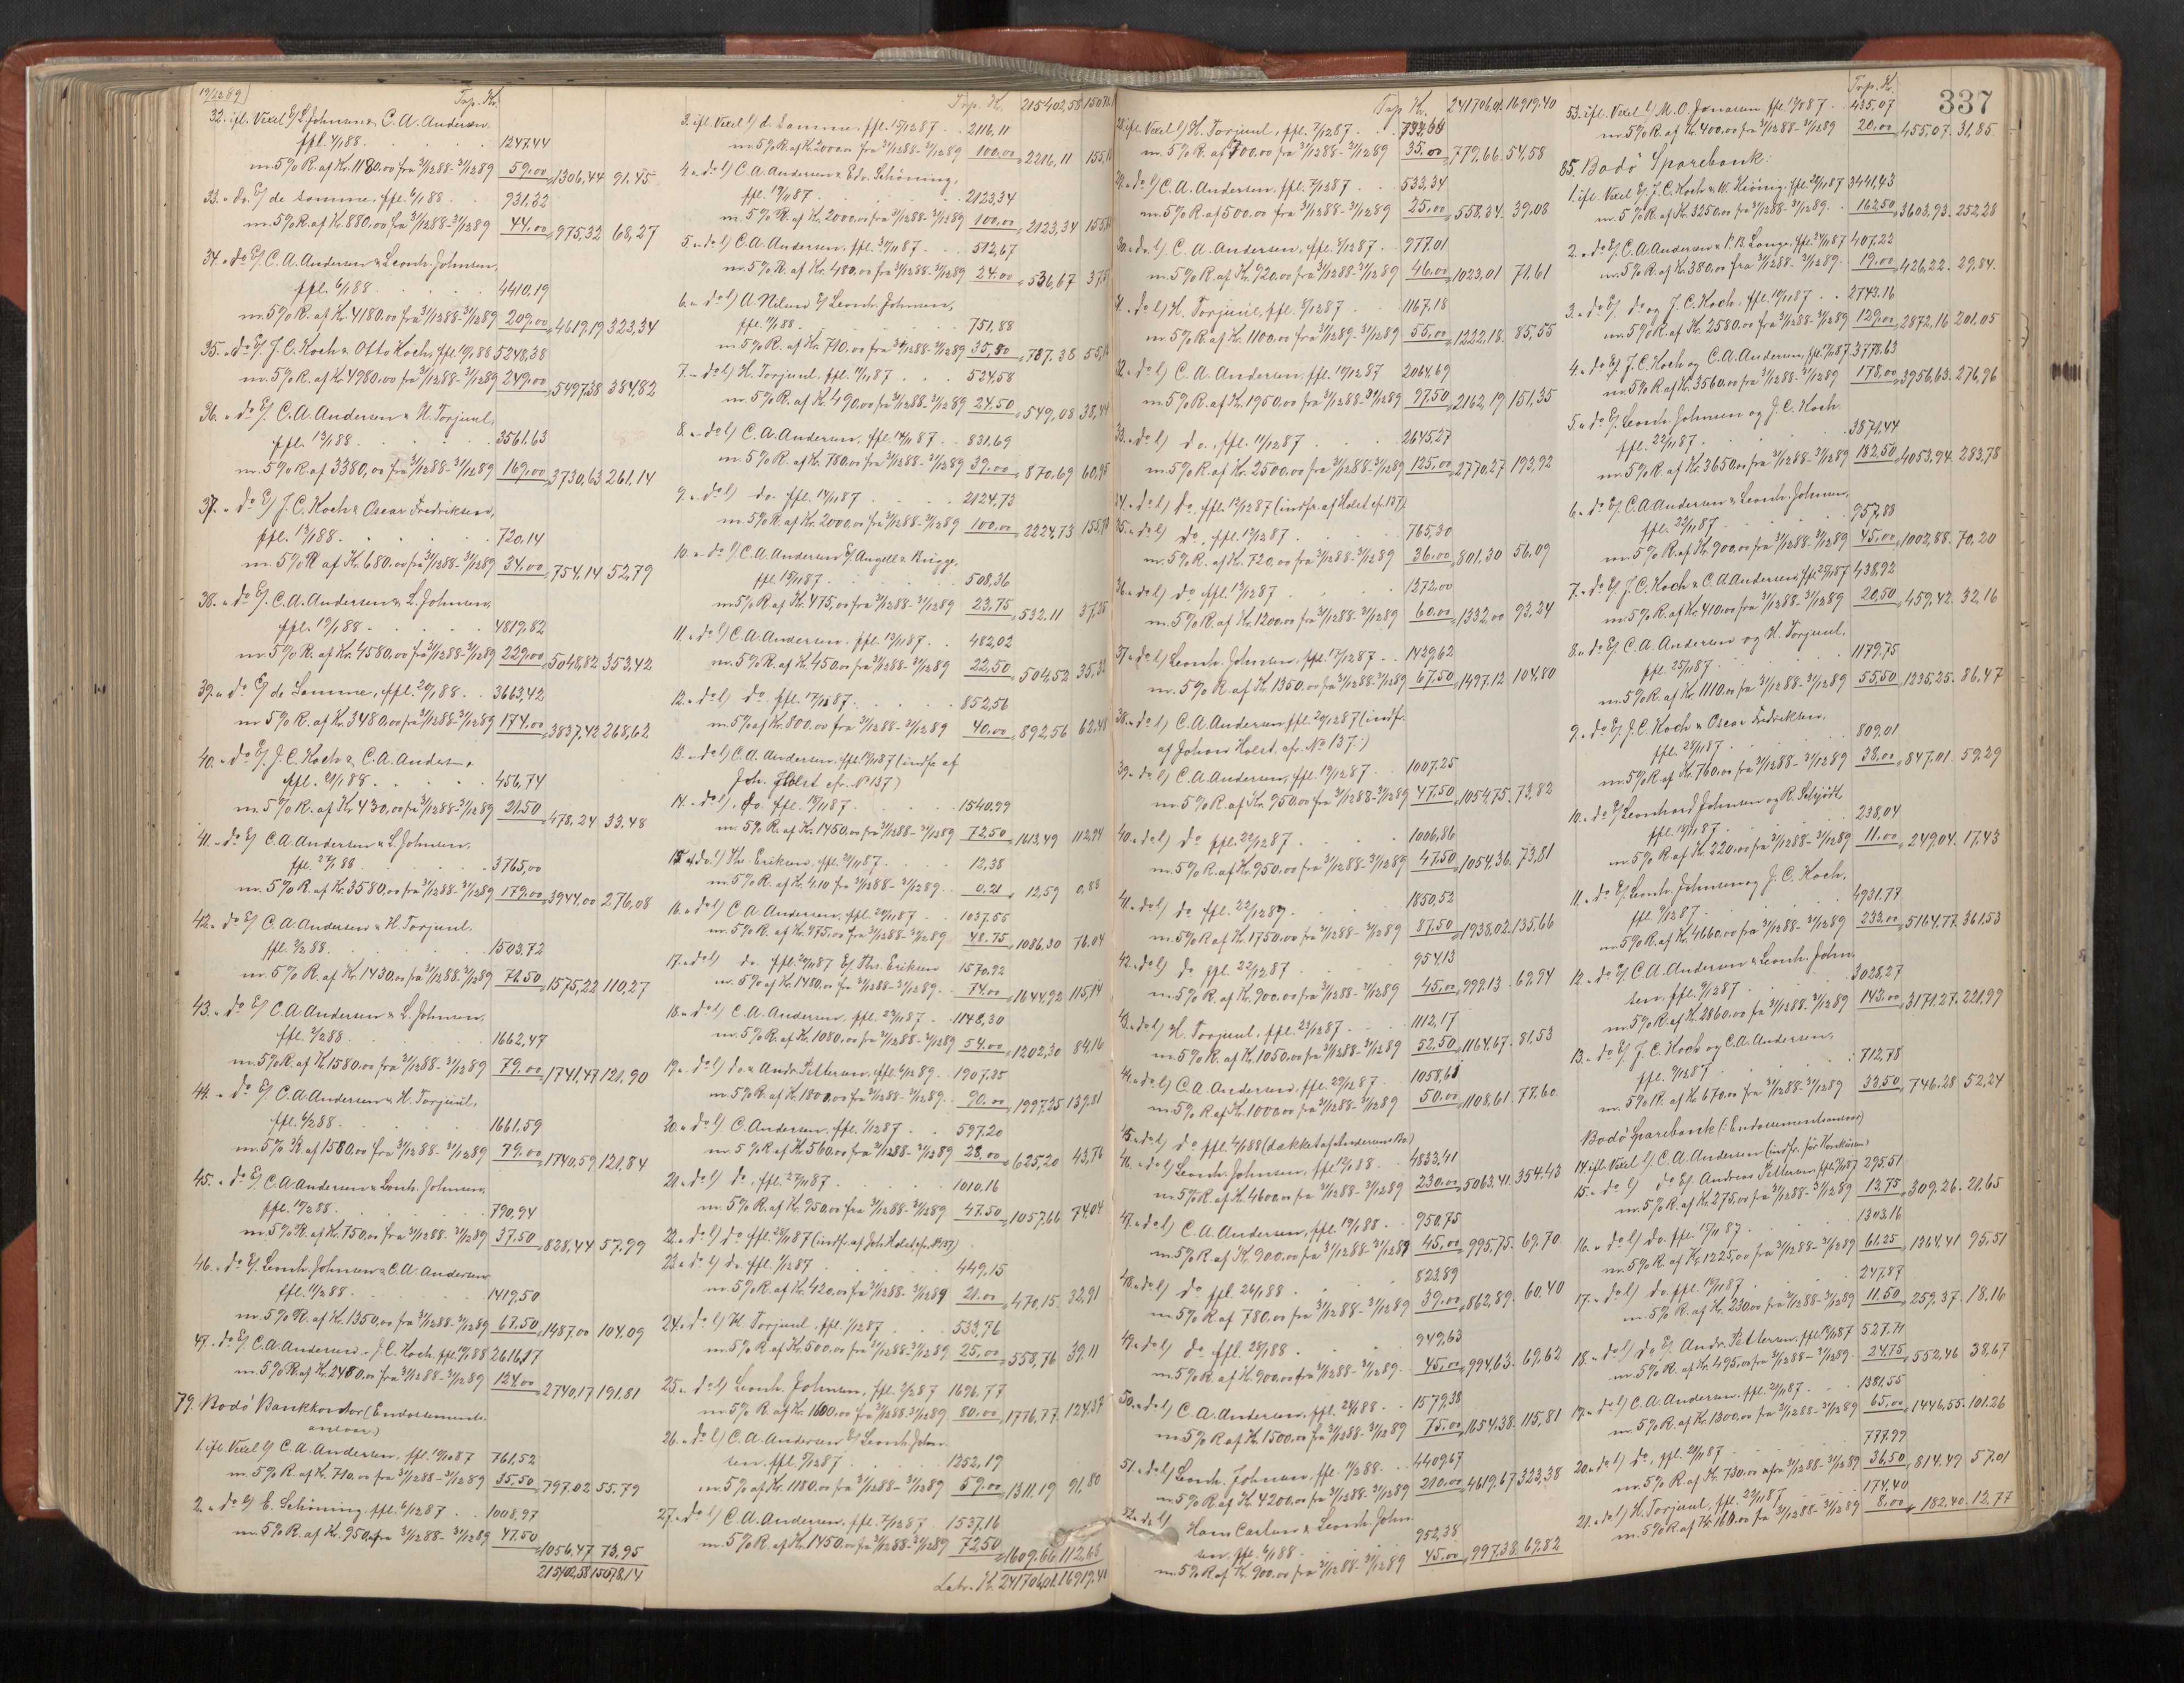 19/12 89
Trp. Kr.
32. ifl. Vexel E/ L. Johnsen & C. A. Andersen,
ffl. 4/1 88. 1247.44
m. 5% R. af Kr. 1180,00 fra 31/12 88-31/12 89 59,00 1306,44 91.45
33. " do. E/ de samme, ffl. 6/1 88. 931.32
m. 5% R. af Kr. 880,00 fra 31/12 88-31/12 89 44,00 975,32 68,27
34. " do E/ C. A. Andersen & Leonh. Johnsen,
ffl. 6/1 88. 4410,19
m. 5% R. af Kr. 4180,00 fra 31/12 88-31/12 89 209,00 4619,19 323,34
35. " do E/ J. C. Koch & Otto Koch, ffl. 88 5248,38
m. 5% R. af Kr. 4980,00 fra 31/12 88-31/12 89 249,00 5497,38 384,82
36. " do E/ C. A. Andersen & H. Torjuul,
ffl. 13/1 88. 3561.63
m. 5% R. af 3380,00 fra 31/12 88-31/12 89 169,00 3730,63 261.14
37. " do E/ J. C. Koch & Oscar Fredriksen,
ffl. 13/1 88. 720,14
m. 5% R af Kr. 680.00 fra 31/12 88-31/12 89 34,00 754,14 52,79
38. " do E/. C. A. Andersen & L. Johnsen,
ffl. 19/1 88. 4819,82
m. 5% R. af Kr. 4580,00 fra 31/12 88-31/12 89 229,00 5048,82 353,42
39. " do E/ de Samme, ffl. 20/1 88. 3663,42
m. 5% R. af Kr. 3480,00 fra 31/12 88-31/12 89 174.00 3837,42 268,62
40. " do E/ J. C. Koch & C. A. Andersen
ffl. 21/1 88. 456,74
m. 5% R. af Kr. 430,00 fra 31/12 88-31/12 89 21.50 478,24 33.48
41. " do E/ C. A. Andersen & L. Johnsen,
ffl. 27/1 88 3765,00
m. 5% R. af Kr. 3580,00 fra 31/12 88-31/12 89 179.00 3944,00 276,08
42. " do E/ C. A. Andersen & H. Torjuul.
ffl. 3/2 88. 1503,72
m. 5% R. af Kr. 1430.00 fra 31/12 88-31/12 89 71.50 1575,22 110,27
43. " do E/ C. A. Andersen & L. Johnsen,
ffl. 3/2 88. 1662,47
m. 5% R. af Kr. 1580.00 fra 31/12 88-31/12 89 79.00 1741,47 121,90
44. " do E/ C. A. Andersen & H. Torjuul,
ffl. 6/2 88. 1661.59
m. 5% R. af 1580,00 fra 31/12 88-31/12 89 79,00 1740,59 121,84
45. " do E/ C. A. Andersen & Leonh. Johnsen,
ffl. 10/2 88. 790,94
m. 5% R. af Kr. 750,00 fra 31/12 88-31/12 89 37.50 828,44 57,99
46. " do E/ Leonh. Johnsen & C. A. Andersen
ffl. 11/2 88. 1419,50
m. 5% R. af Kr. 1350,00 fra 31/12 88-31/12 89 67.50 1487.00 104.09
47. " do E/ C. A. Andersen & J. C. Koch, ffl. 88 2616,17
m. 5% R. af Kr. 2480.00 fra 31/12 88-31/12 89 124.00 2740.17 191,81
79. Bodö Bankkontor (Endossements-
ansvar)
1. ifl. Vexel E/ C. A. Andersen, ffl. 87 761,52
m. 5% R. af Kr. 710,00 fra 31/12 88-31/12 89 35,50 797.02 55.79
2. " do E/ E. Schöning, ffl. 6/12 87 1008,97
m. 5% R. af Kr. 950, fra 31/12 88-31/12 89 47.50 1056.47 73,95
215402,58 15078,14
Trp. Kr. 215402,58
3. ifl. Vexel E/ d. Samme, ffl. 15/12 87 2116,11
m. 5% R. af Kr. 2000.00 fra 31/12 88-31/12 89 100,00 2216,11
4. " do E/ C. A. Andersen & Edv. Schöning,
ffl. 87 2023,34
m. 5% R. af Kr. 2000,00 fra 31/12 88-31/12 89 100,00 2123,34
5. " do E/ C. A. Andersen, ffl. 87 512,67
m. 5% R. af Kr. 480,00 fra 31/12 88-31/12 89 24.00 536,67
6. " do E/ A. Nilsen E/ Leonh. Johnsen,
ffl. 88. 751,88
m. 5% R. af Kr. 710,00 fra 31/12 88-31/12 89 35,50 787.38
7. " do E/ H. Torjuul, ffl. 87 524,58
m. 5% R. af Kr. 490,00 fra 31/12 88-31/12 89 24,50 549,08
8. " do E/ C. A. Andersen, ffl. 14/11 87 831,69
m. 5% R. af Kr. 780,00 fra 31/12 88-31/12 89 39,00 870,69
9. " do E/ do. ffl. 14/11 87 2124,73
m. 5% R. af Kr. 2000.00 fra 31/12 88-31/12 89 100,00 2224,73
10. " do E/ C. A. Andersen E/ Angell & Brügge,
ffl. 15/11 87 508,36
m. 5% R. af Kr. 475,00 fra 31/12 88-31/12 89 23,75 532.11
11. " do E/ C. A. Andersen, ffl. 87 482,02
m. 5% R. af Kr. 450,00 fra 31/12 88-31/12 89 22,50 504,52
12. " do E/ do. ffl. 87 852,56
m. 5% af Kr. 800,00 fra 31/12 88-31/12 89 40,00 892,56 62,48
13. " do E/ C. A. Andersen, ffl. 87 (indfr. af
Joh. Holst cfr. No 137)
14. " do E/, do. ffl. 87 1540.99
m. 5% R. af Kr. 1450,00 fra 31/12 88-31/12 89 72,50 1613,49 112,94
15. " do. E/ Thr. Eriksen, ffl. 87 12,38
m. 5% R. af Kr. 4.10 fra 31/12 88-31/12 89 0.21 12,59 0,88
16. " do E/ C. A. Andersen, ffl. 87 1037.55
m. 5% R. af Kr. 975,00 fra 31/12 88-31/12 89 48.75 1086,30 76.04
17. " do E/ do. ffl. 87 E/ Thr. Eriksen 1570,92
m. 5% af Kr. 1480,00 fra 31/12 88-31/12 89 74.00 1644,92 115,14
18. " do E/ C. A. Andersen, ffl. 87 1148,30
m. 5% R. af Kr. 1080,00 fra 31/12 88-31/12 89 54.00 1202,30 84,16
19. " do E/ do. & Andr. Pettersen, ffl. 1907.25
m. 5% R. af Kr. 1800,00 fra 31/12 88-31/12 89 90.00 1997,25 139,81
20. " do E/ C. Andersen, ffl. 1/12 87 597.20
m. 5% R. af Kr. 560,00 fra 31/12 88-31/12 89 28,00 625,20 43,76
21. " do E/ do, ffl. 87 1010,16
m. 5% R. af Kr. 950,00 fra 31/12 88-31/12 89 47.50 1057,66 74,04
22. " do E/ do ffl. 87 (indfr. af Joh. Holst cfr. No 137)
23. " do E/ do. ffl. 1/12 87 449,15
m. 5% R. af Kr. 420,00 fra 31/12 88-31/12 89 21.00 470,15 32,91
24. " do E/ H. Torjuul, ffl. 1/12 87 533,76
m. 5% R. af Kr. 500,00 fra 31/12 88-31/12 89 25,00 558,76 39.11
25. " do E/ Leonh. Johnsen, ffl. 87 1696,77
m. 5% R. af Kr. 1600,00 fra 31/12 88-31/12 89 80,00 1776,77 124,37
26. " do E/ C. A. Andersen E/ Leonh. John-
sen, ffl. 87 1252,19
m. 5% af Kr. 1180.00 fra 31/12 88-31/12 89 59.00 1311.19 91,80
27. " do E/ C. A. Andersen, ffl. 7/12 87 1537,16
m. 5% R. af Kr. 1450.00 fra 31/12 88-31/12 89 72,50 1609.66 112,68
Latr. Kr. 241706,01 16919,40
337
Trp. Kr. 241706,01 16919.40
28. ifl. Vexel E/ H. Torjuul, ffl. 7/12 87
m. 5% R. af 700,00 fra 31/12 88-31/12 89 35.00 779,66 54,58
29. " do E/ C. A. Andersen, ffl. 7/12 87 533,34
m. 5% R. af 500.00 fra 31/12 88-31/12 89 25,00 558,34 39,08
30. " do E/ C. A. Andersen, ffl. 87 977.01
m. 5% R. af Kr. 920,00 fra 31/12 88-31/12 89 46,00 1023,01 71,61
31. " do E/ H. Torjuul, ffl. 87 1167,18
m. 5% R. af Kr. 1100,00 fra 31/12 88-31/12 89 55,00 1222,18 85,55
32. " do E/ C. A. Andersen, ffl. 87 2064,69
m. 5% R. af Kr. 1950,00 fra 31/12 88-31/12 89 97.50 2162,19 151,35
33. " do E/ do., ffl. 11/12 87 2645,27
m. 5% R. af Kr. 2500.00 fra 31/12 88-31/12 89 125,00 2770,27 193,92
34. " do E/ do, ffl. 87 (indfr. af Holst cfr. 137)
35. " do E/ do, ffl. 87 765,30
m. 5% R. af Kr. 720,00 fra 31/12 88-31/12 89 36,00 801,30 56,09
36. " do E/ do ffl. 87 1272,00
m. 5% R. af Kr. 1200,00 fra 31/12 88-31/12 89 60.00 1332,00 93,24
37. " do E/ Leonh. Johnsen, ffl. 87 1429,62
m. 5% R. af Kr. 1350,00 fra 31/12 88-31/12 89 67.50 1497.12 104,80
38. " do E/ C. A. Andersen ffl. 87 (indfr.
af Johan Holst, cfr. No 137.)
39. " do E/ C. A. Andersen, ffl. 87 1007.25
m. 5% R. af Kr. 950.00 fra 31/12 88-31/12 89 47.50 1054,75 73,82
40. " do E/ do ffl. 22/12 87 1006,86
m. 5% R. af Kr. 950,00 fra 31/12 88-31/12 89 47.50 1054.36 73,81
41. " do E/ do ffl. 22/12 89 1850,52
m. 5% R. af Kr. 1750.00 fra 31/12 88-31/12 89 87.50 1938.02 135,66
42. " do E/ do ffl. 22/12 87 954.13
m. 5% R. af Kr. 900,00 fra 31/12 88-31/12 89 45,00 999.13 69,94
43. " do E/ H. Torjuul, ffl. 87 1112,17
m. 5% R. af Kr. 1050,00 fra 31/12 88-31/12 89 52,50 1164,67 81,53
44. " do E/ C. A. Andersen, ffl. 87 1058,61
m. 5% R. af Kr. 1000.00 fra 31/12 88-31/12 89 50,00 1108,61 77.60
45. " do E/ do ffl. 4/1 88 (dækket af Andersens Bo)
46. " do E/ Leonh. Johnsen, ffl. 88 4833,41
m. 5% R. af Kr. 4600,00 fra 31/12 88-31/12 89 230,00 5063,41 354.43
47. " do E/ C. A. Andersen, ffl. 88 950.75
m. 5% R. af Kr. 900.00 fra 31/12 88-31/12 89 45,00 995,75 69,70
48. " do E/ do ffl. 24/1 88. 823,89
m. 5% R. af 780,00 fra 31/12 88-31/12 89 39,00 862,89 60,40
49. " do E/ do ffl. 88. 949,63
m. 5% R. af Kr. 900.00 fra 31/12 88-31/12 89 45,00 994,63 69,62
50. " do E/ C. A. Andersen, ffl. 88 1579,38
m. 5% R. af Kr. 1500,00 fra 31/12 88-31/12 89 75,00 1654.38 115,81
51. " do E/ Leonh. Johnsen, ffl. 88 4409,67
m. 5% R. af Kr. 4200,00 fra 31/12 88-31/12 89 210,00 4619,67 323,38
52. " do E/ Hans Carlsen & Leonh. John-
sen, ffl. 6/1 88. 952,38
m. 5% R. af Kr. 900,00 fra 31/12 88-31/12 89 45,00 997,38 69,82
Trp. Kr.
53. ifl. Vexel E/ M. O. Jonasen, ffl. 87 435,07
m. 5% R. af Kr. 400,00 fra 31/12 88-31/12 89 20,00 455,07 31,85
85. Bodö Sparebank:
1. ifl. Vexel E/ J. C. Koch & W. Krönig, ffl. 87 3441,43
m. 5% R. af Kr. 3250,00 fra 31/12 88-31/12 89 162,50 3603,93 252,28
2. " do E/ C. A. Andersen & P. B. Lange, ffl. 87 407,22
m. 5% R. af Kr. 380,00 fra 31/12 88-31/12 89 19,00 426,22 29,84
3. " do E/ do og J. C. Koch, ffl. 87 2743.16
m. 5% R. af Kr. 2580.00 fra 31/12 88-31/12 89 129,00 2872,16 201,05
4. " do E/ J. C. Koch og C. A. Andersen, ffl. 87 3778,63
m. 5% R. af Kr. 3560,00 fra 31/12 88-31/12 89 178,00 3956,63 276,96
5. " do E/ Leonh. Johnsen og J. C. Koch,
ffl. 22/11 87 3871,44
m. 5% R. af Kr. 3650,00 fra 31/12 88-31/12 89 182,50 4053,94 283,78
6. " do E/ C. A. Andersen & Leonh. Johnsen,
ffl. 22/11 87 957,88
m. 5% R. af Kr. 900,00 fra 31/12 88-31/12 89 45,00 1002,88 70,20
7. " do E/ J. C. Koch & C. A. Andersen, ffl. 87 438,92
m. 5% R. af Kr. 410,00 fra 31/12 88-31/12 89 20,50 459,42 32,16
8. " do E/ C. A. Andersen og H. Torjuul,
ffl. 25/11 87 1179,75
m. 5% R. af Kr. 1110,00 fra 31/12 88-31/12 89 55,50 1235,25 86,47
9. " do E/ J. C. Koch & Oscar Fredriksen,
ffl. 28/11 87 809,01
m. 5% R. af Kr. 760,00 fra 31/12 88-31/12 89 38,00 847.01 59,29
10. " do E/ Leonhard Johnsen og R. Schjödt,
ffl. 87 238,04
m. 5% R. af Kr. 220,00 fra 31/12 88-31/12 89 11.00 249,04 17,43
11. " do E/ Leonh. Johnsen og J. C. Koch,
ffl. 9/12 87 4931,77
m. 5% R. af Kr. 4660,00 fra 31/12 88-31/12 89 233,00 5164,77 361,53
12. " do E/ C. A. Andersen & Leonh. John-
sen, ffl. 9/12 87 3028,27
m. 5% R. af Kr. 2860,00 fra 31/12 88-31/12 89 143.00 3171,27 221,99
13. " do E/ J. C. Koch og C. A. Andersen,
ffl. 9/12 87 712,78
m. 5% R. af Kr. 670,00 fra 31/12 88-31/12 89 33,50 746.28 52,24
Bodö Sparebank (: Endossementsansvar)
14. ifl. Vexel E/ C. A. Andersen (indfr. för Konkursen)
15. " do E/ do E/ Andreas Pettersen, ffl. 87 295,51
m. 5% R. af Kr. 275,00 fra 31/12 88-31/12 89 13,75 309.26 21.65
16. " do E/ do. ffl. 15/11 87 1303.16
m. 5% R. af Kr. 1225,00 fra 31/12 88-31/12 89 61.25 1364.41 95,51
17. " do E/ do. ffl. 87 247,87
m. 5% R. af Kr. 230,00 fra 31/12 88-31/12 89 11.50 259,37 18.16
18. " do E/ do E/ Andr. Pettersen, ffl. 87 527.71
m. 5% R. af Kr. 495,00 fra 31/12 88-31/12 89 24,75 552,46 38,67
19. " do E/ C. A. Andersen, ffl. 87 1381,55
m. 5% R. af Kr. 1300,00 fra 31/12 88-31/12 89 65,00 1446,55 101.26
20. " do E/ do, ffl. 87 777.99
m. 5% R. af Kr. 730.00 fra 31/12 88-31/12 89 36,50 814.49 57.01
21. " do E/ H. Torjuul, ffl. 87 174,40
m. 5% R. af Kr. 160.00 fra 31/12 88-31/12 89 8.00 182,40 12,77